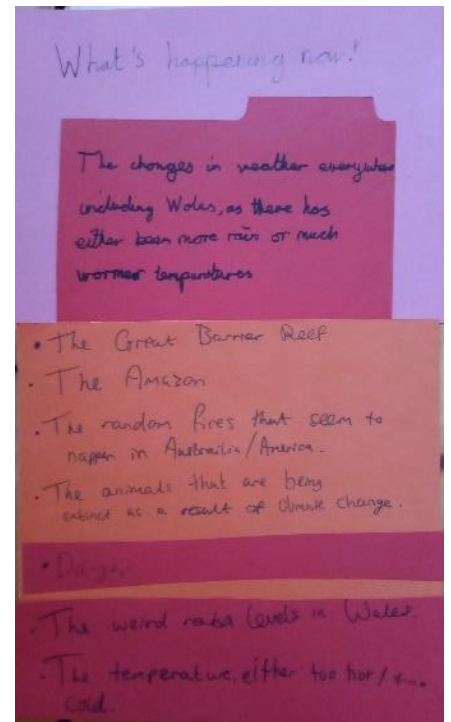 What's happening now!
The changes in weather everywhere
including Wales, as there has
either been more rain or much
warmer temperatures
• The Great Barrier Reef
• The Amazon
• The random fires that seem to
happen in Austrailia/America.
• The animals that are being
extinct as a result of climate change.
• Danger
• The weird water levels in Wales.
• The temperature, either too hot/
cold.